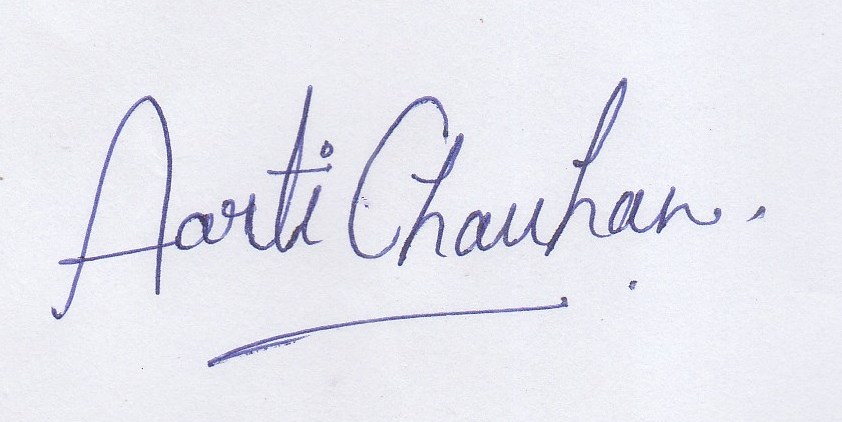 Aarti Chauhan.